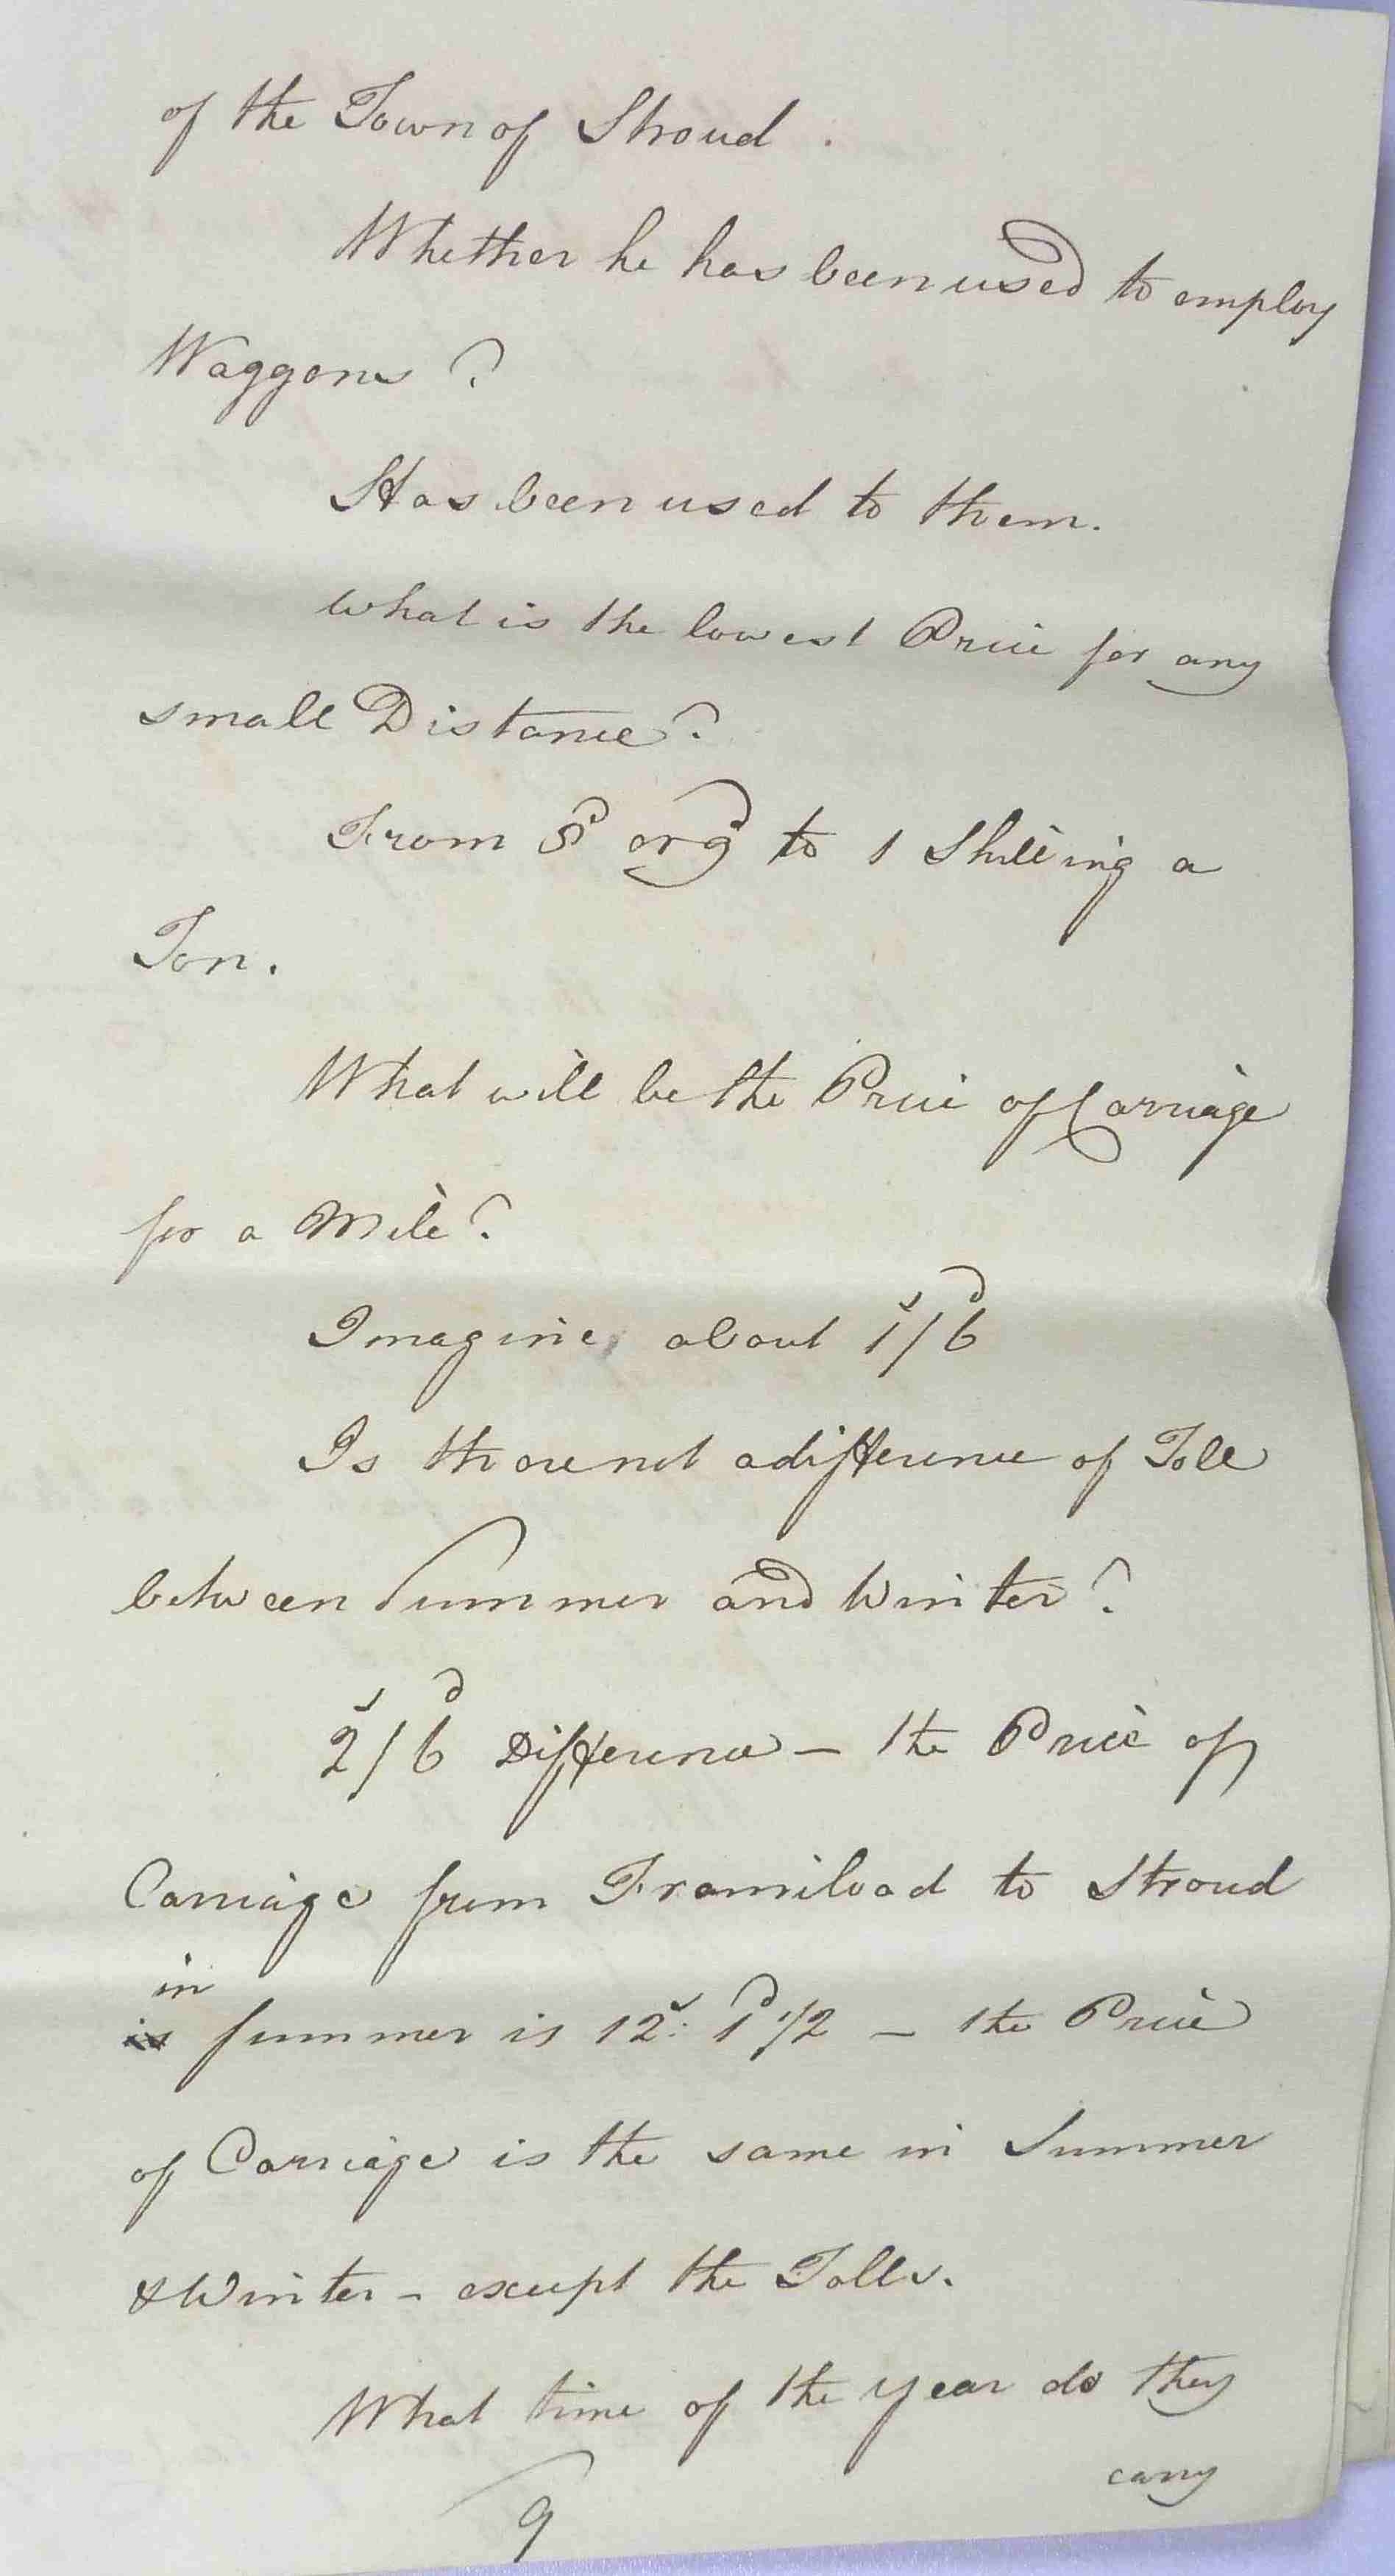 of the Town of Stroud .
Whether he has been used to employ
Waggons ?
Has been used to them.
what is the lowest Price for any
small Distance ?
From 8d or 9d to 1 Shilling a
Ton.
What will be the Price of Carriage
for a Mile ?
Imagine about 1s/6d
Is there not a difference of Toll
between Summer and Winter ?
2s/6d Difference – the Price of
Carriage from Framiload to Stroud
in
is Summer is 12s: 1d 1/2 – the Price
of Carriage is the same in Summer
& Winter – except the Tolls.
What time of the year do they
carry
9